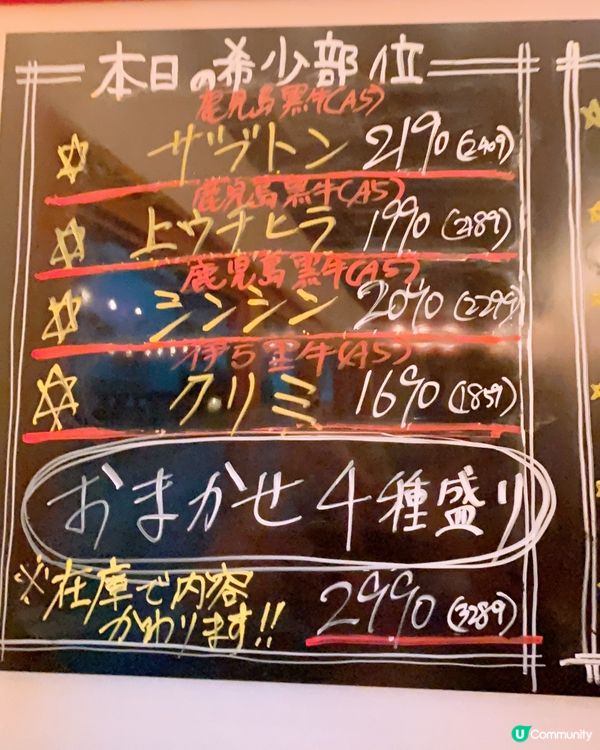 本日の希少部位
鹿児島黒牛(A5)
ザブトン 2190(2409)
鹿児島黒牛(A5)
上ウチヒラ 1990(2189)
鹿児島黒牛(A5)
シンシン 2090(2299)
伊万里牛(A5)
クリミ 1690(1859)
おまかせ4種盛り
※在庫で内容
かわります!! 2990(3289)
U Community